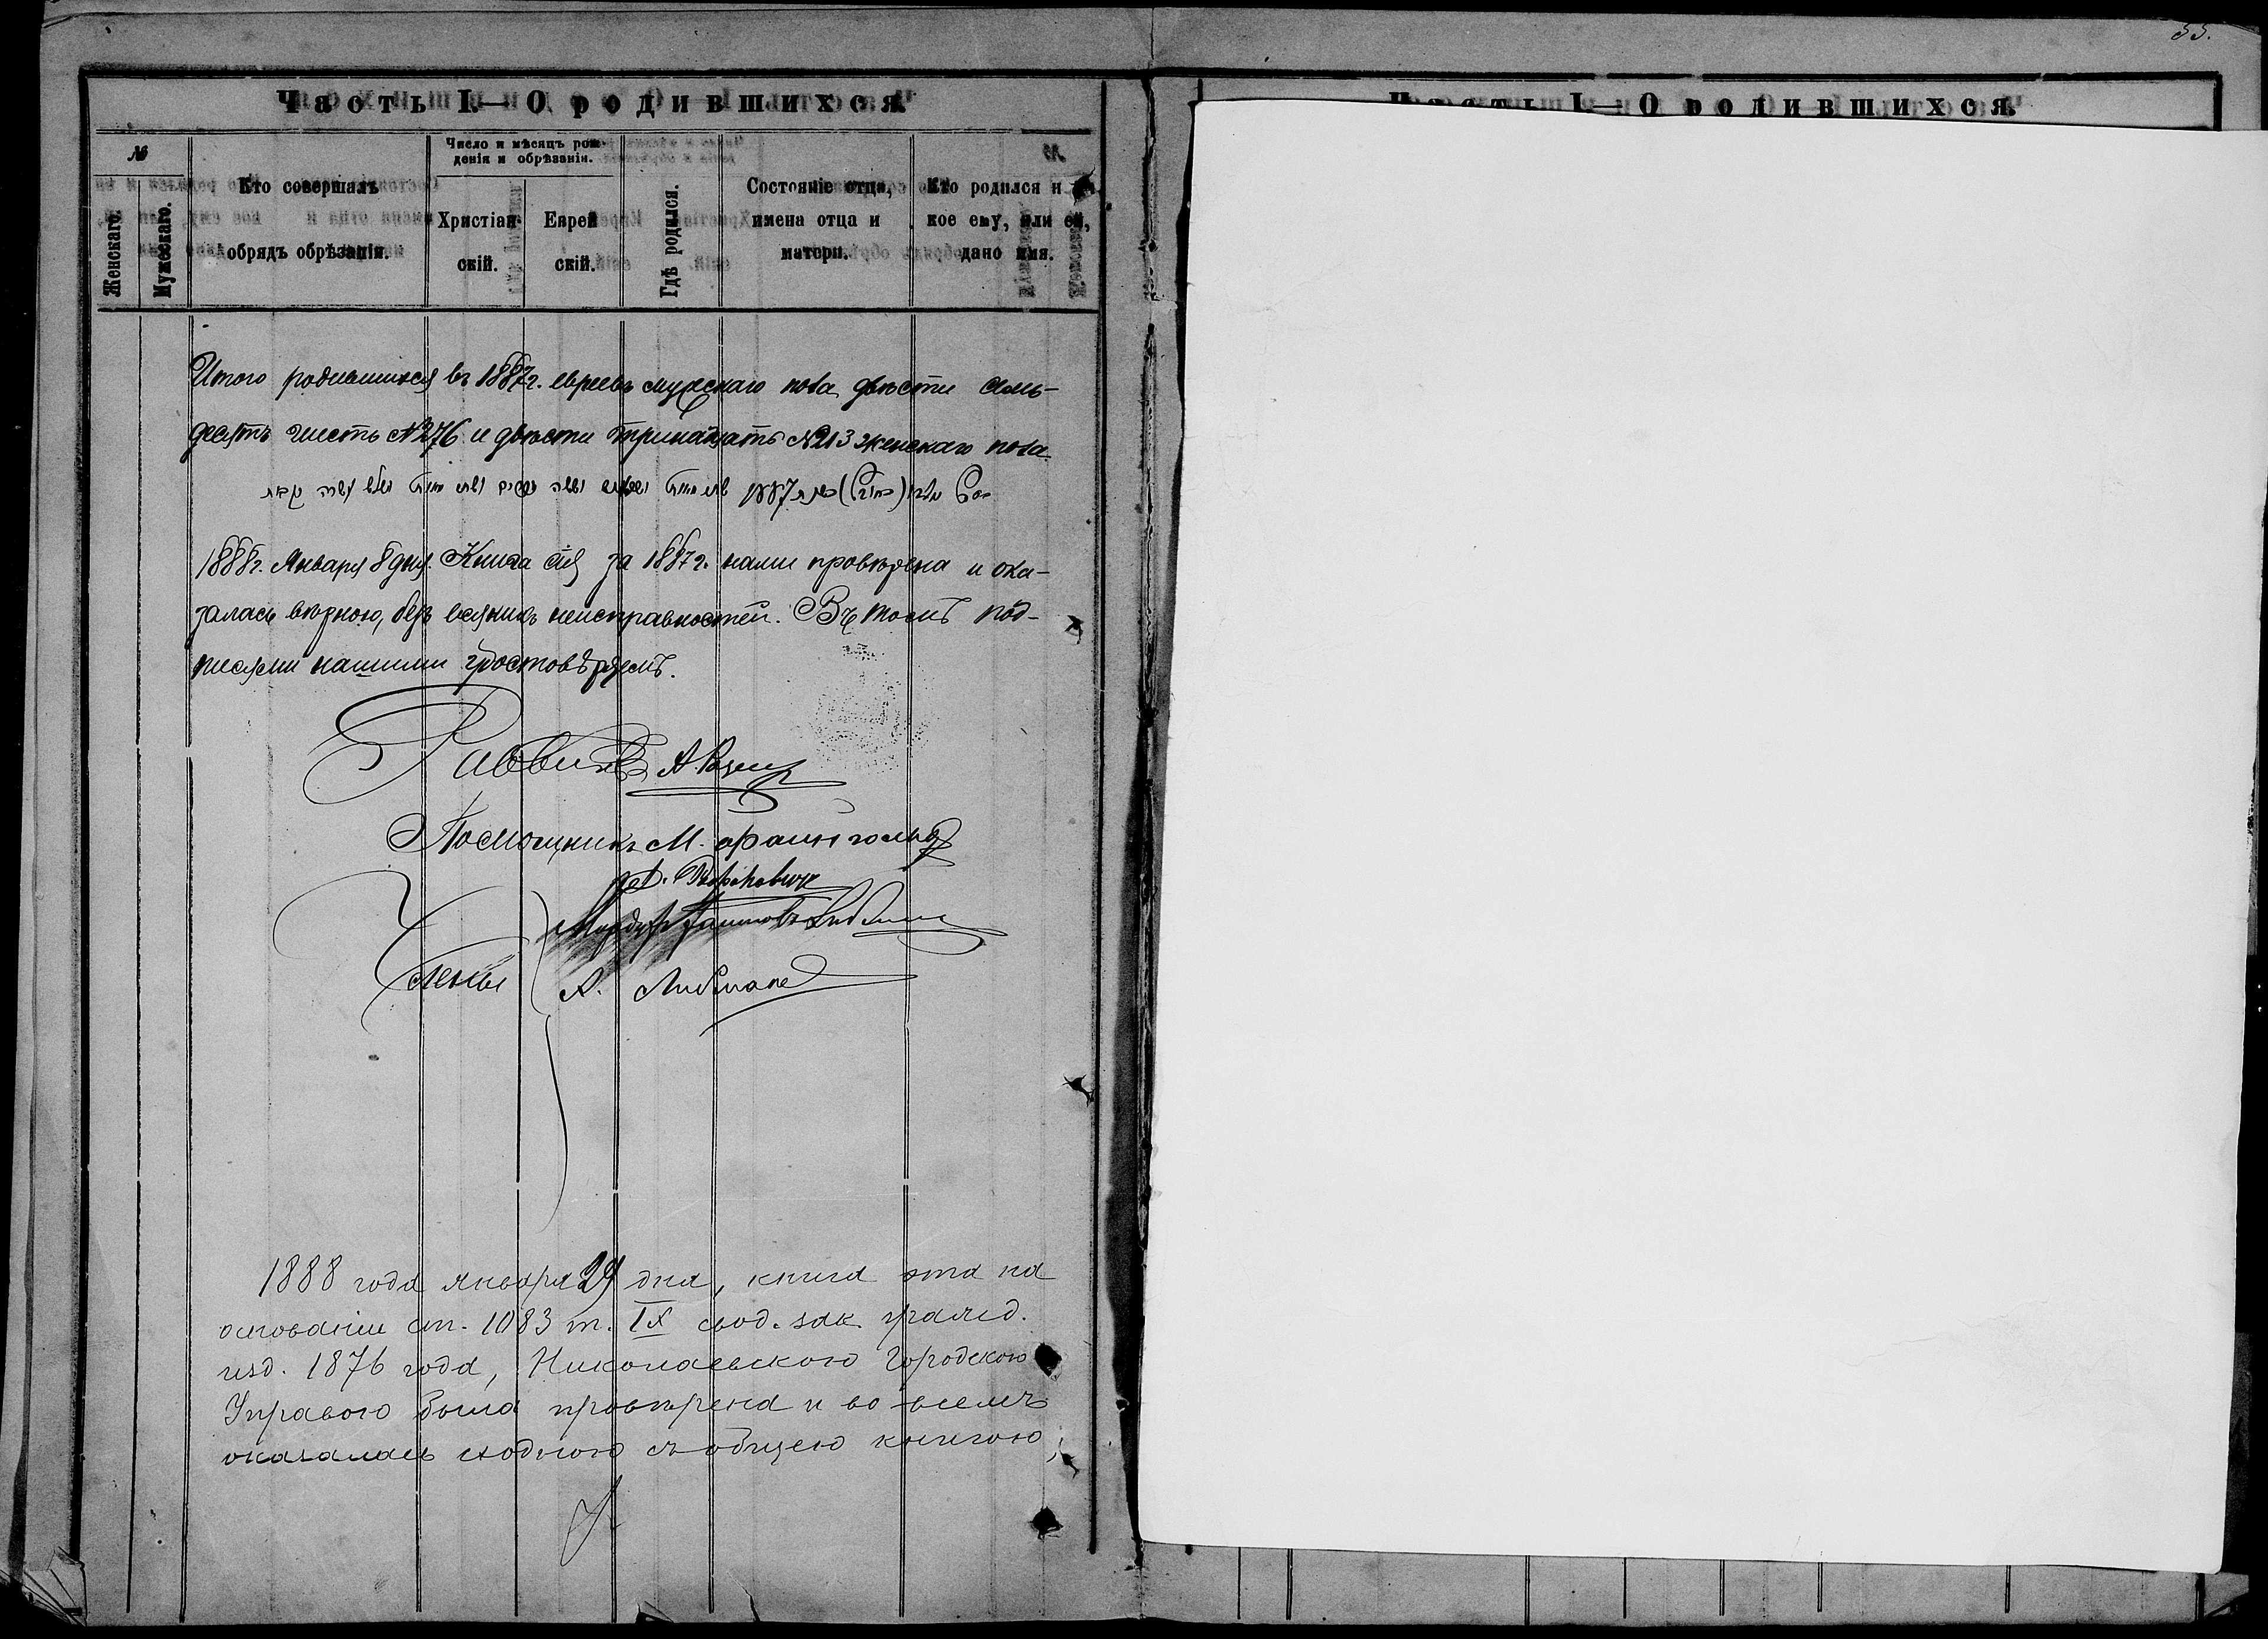 55.
Часть I—О родившихся.
Часть I—О родившихся.
№
Женскаго.
Мужескаго.
Кто совершалъ
обрядъ обрѣзанія.
Число и мѣсяцъ рож-
денія и обрѣзанія.
Христіан-
скій.
Еврей
скій.
Гдѣ родился.
Состояніе отца,
имена отца и
матери.
Кто родился и
кое ему, или ей,
дано имя.
Итого родившихся въ 1887 г. евреевъ мужскаго пола двѣсти семь-
десятъ шесть №276 и двѣсти тринадцать №213 женскаго пола
1888 г. Января 8 дня. Книга сія за 1887 г. нами провѣрена и ока-
залась вѣрною, безъ всякихъ неисправностей. Въ томъ под-
писями нашими удостовѣряемъ.
Раввинъ А.
Помощникъ М. Файнгольдъ
Члены
А. Либманъ
1888 года января 29 дня, книга эта на
основаніи ст. 1083 т. IX свод. зак. гражд.
изд. 1876 года, Николаевскою Городскою
Управою была провѣрена и во всемъ
оказалась сходною съ общею книгою;